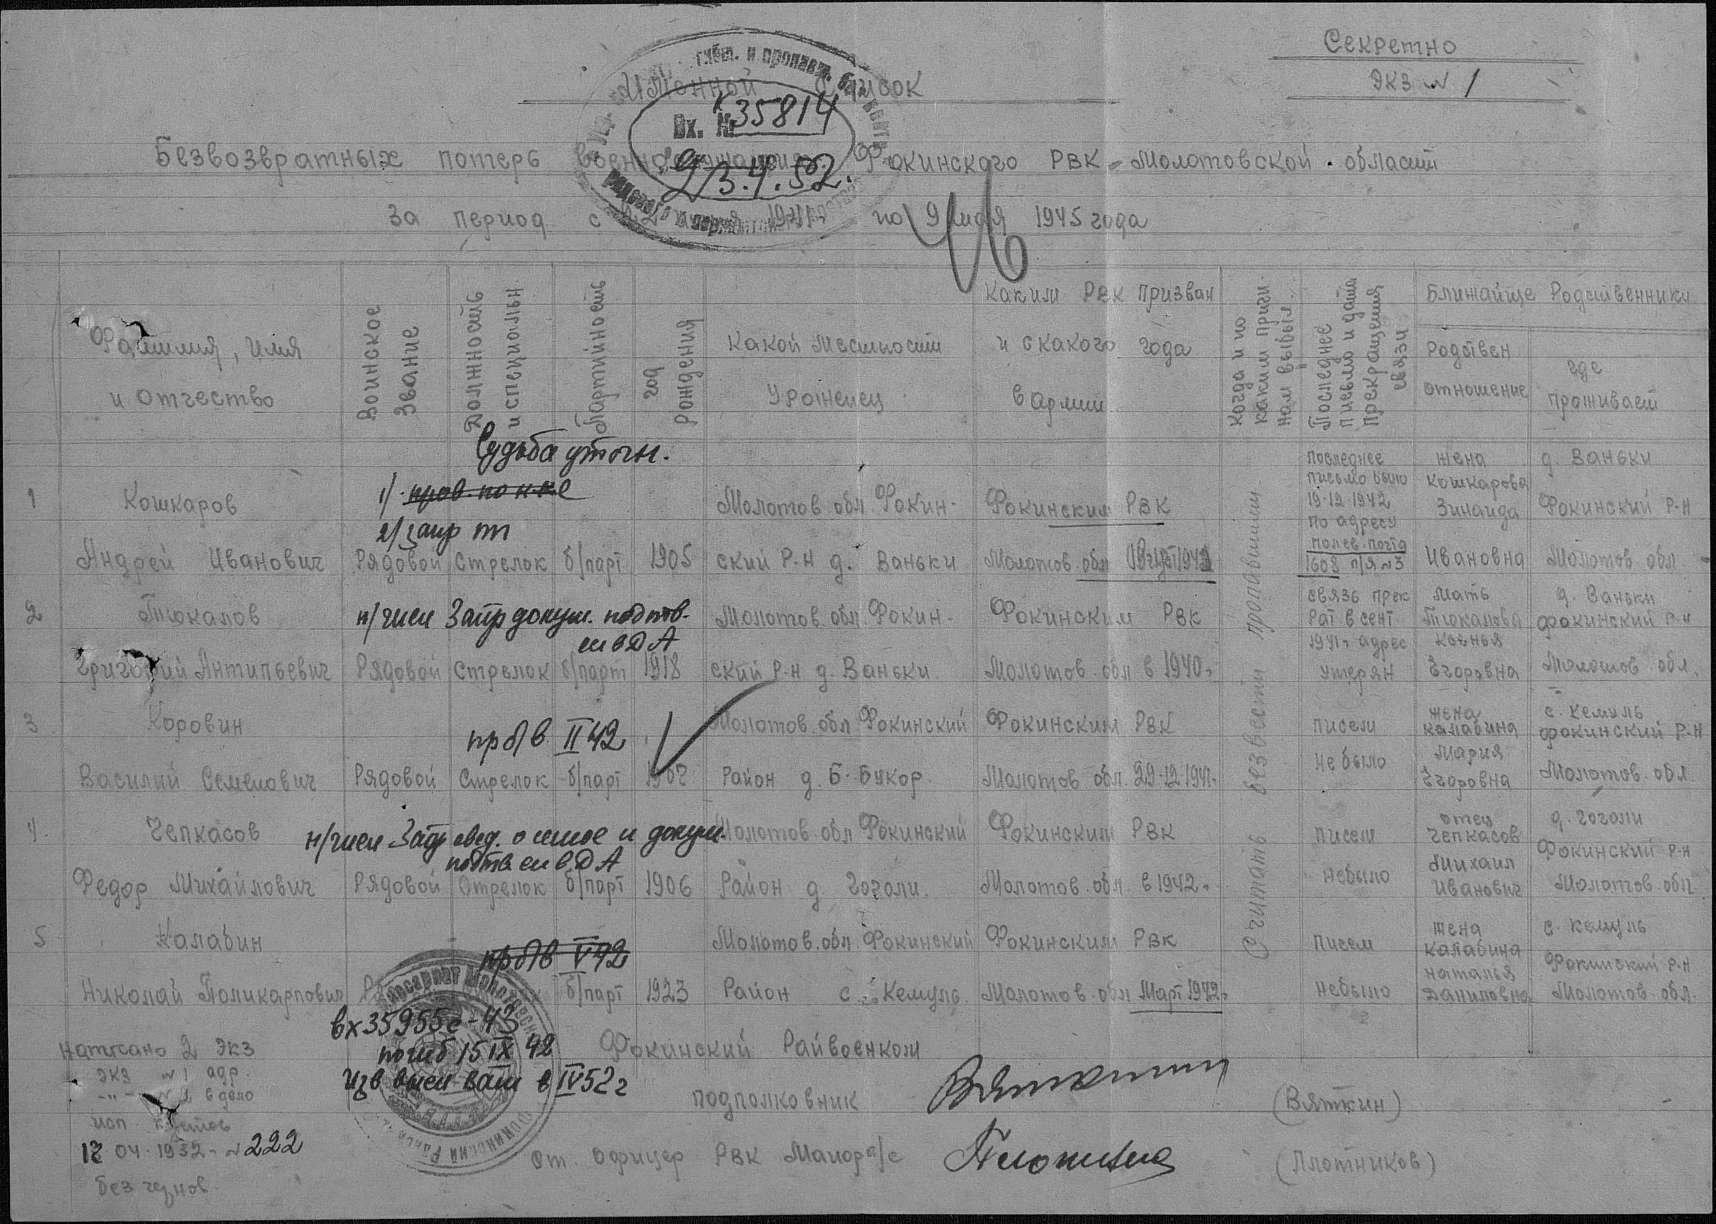 Секретно
экз № 1
Именной список
Вх. № 35814
9/3.4.52.
Безвозвратных потерь Фокинского РВК Молотовской области
За период с по 9 1945 года
Фамилия, имя и отчество
Воинское звание
Должность и специальн
Партийность
год рождения
Какой местности уроженец
Каким РВК призван и с какого года в армии
Когда и по каким причинам выбыл
Последнее письмо и дата прекращения связи
Ближайшие Родственники
Родствен отношение
где проживает
Судьба уточн.
1/ проп. по
2/ запр
1 Кошкаров Андрей Иванович Рядовой Стрелок б/парт 1905 Молотов обл. Фокинский Р-н д. Ваньки Фокинским РВК Молотов обл Август 1942 Последнее письмо было 19-12-1942 по адресу полев. почта 1608 п/я №3 жена Кошкарова Зинаида Ивановна д. Ваньки Фокинский Р-н Молотов обл
н/числ Запр докум. подтв.
ги в ДА
2 Тюкалов Григорий Антипьевич Рядовой Стрелок б/парт 1918 Молотов обл. Фокинский Р-н д. Ваньки. Фокинским РВК Молотов. обл в 1940г связь прекрат в сент 1941г адрес утерян мать Тюкалова Егоровна д. Ваньки Фокинский Р-н Молотов обл.
пр б/в II 42
3 Коровин Василий Семенович Рядовой Стрелок б/парт Молотов. обл Фокинский Район д. Б-Букор. Фокинским РВК Молотов обл. 29-12 1941г. писем не было жена Калабина Мария Егоровна с. Кемуль Фокинский Р-Н Молотов. обл
н/числ Запр свед. о семье и докум.
подтв ги в ДА
4 Чепкасов Федор Михайлович Рядовой Стрелок б/парт 1906 Молотов обл Фокинский Район д. Гоголи. Фокинским РВК Молотов. обл в 1942г. писем небыло отец Чепкасов Михаил Иванович д. Гоголи Фокинский Р-н Молотов. обл
пр б/в V 42
5 Калабин Николай Поликарпович б/парт 1923 Молотов. обл. Фокинский Район с. Кемуль. Фокинским РВК Молотов. обл Март 1942г. писем небыло жена Калабина Наталья Даниловна с. Кемуль Фокинский Р-н Молотов. обл.
Считать без вести пропавшими
вх 35955с - 43
погиб 15 IX 42
Изв высл вами в IV 52 г
Напис­ано 2 экз
экз № 1 адр.
в дело
исп
12 04-1952г № 222
без черн­ов.
Фокинский Райвоенком
подполковник (Вяткин)
Ст. Офицер РВК Майор а/с (Плотников)